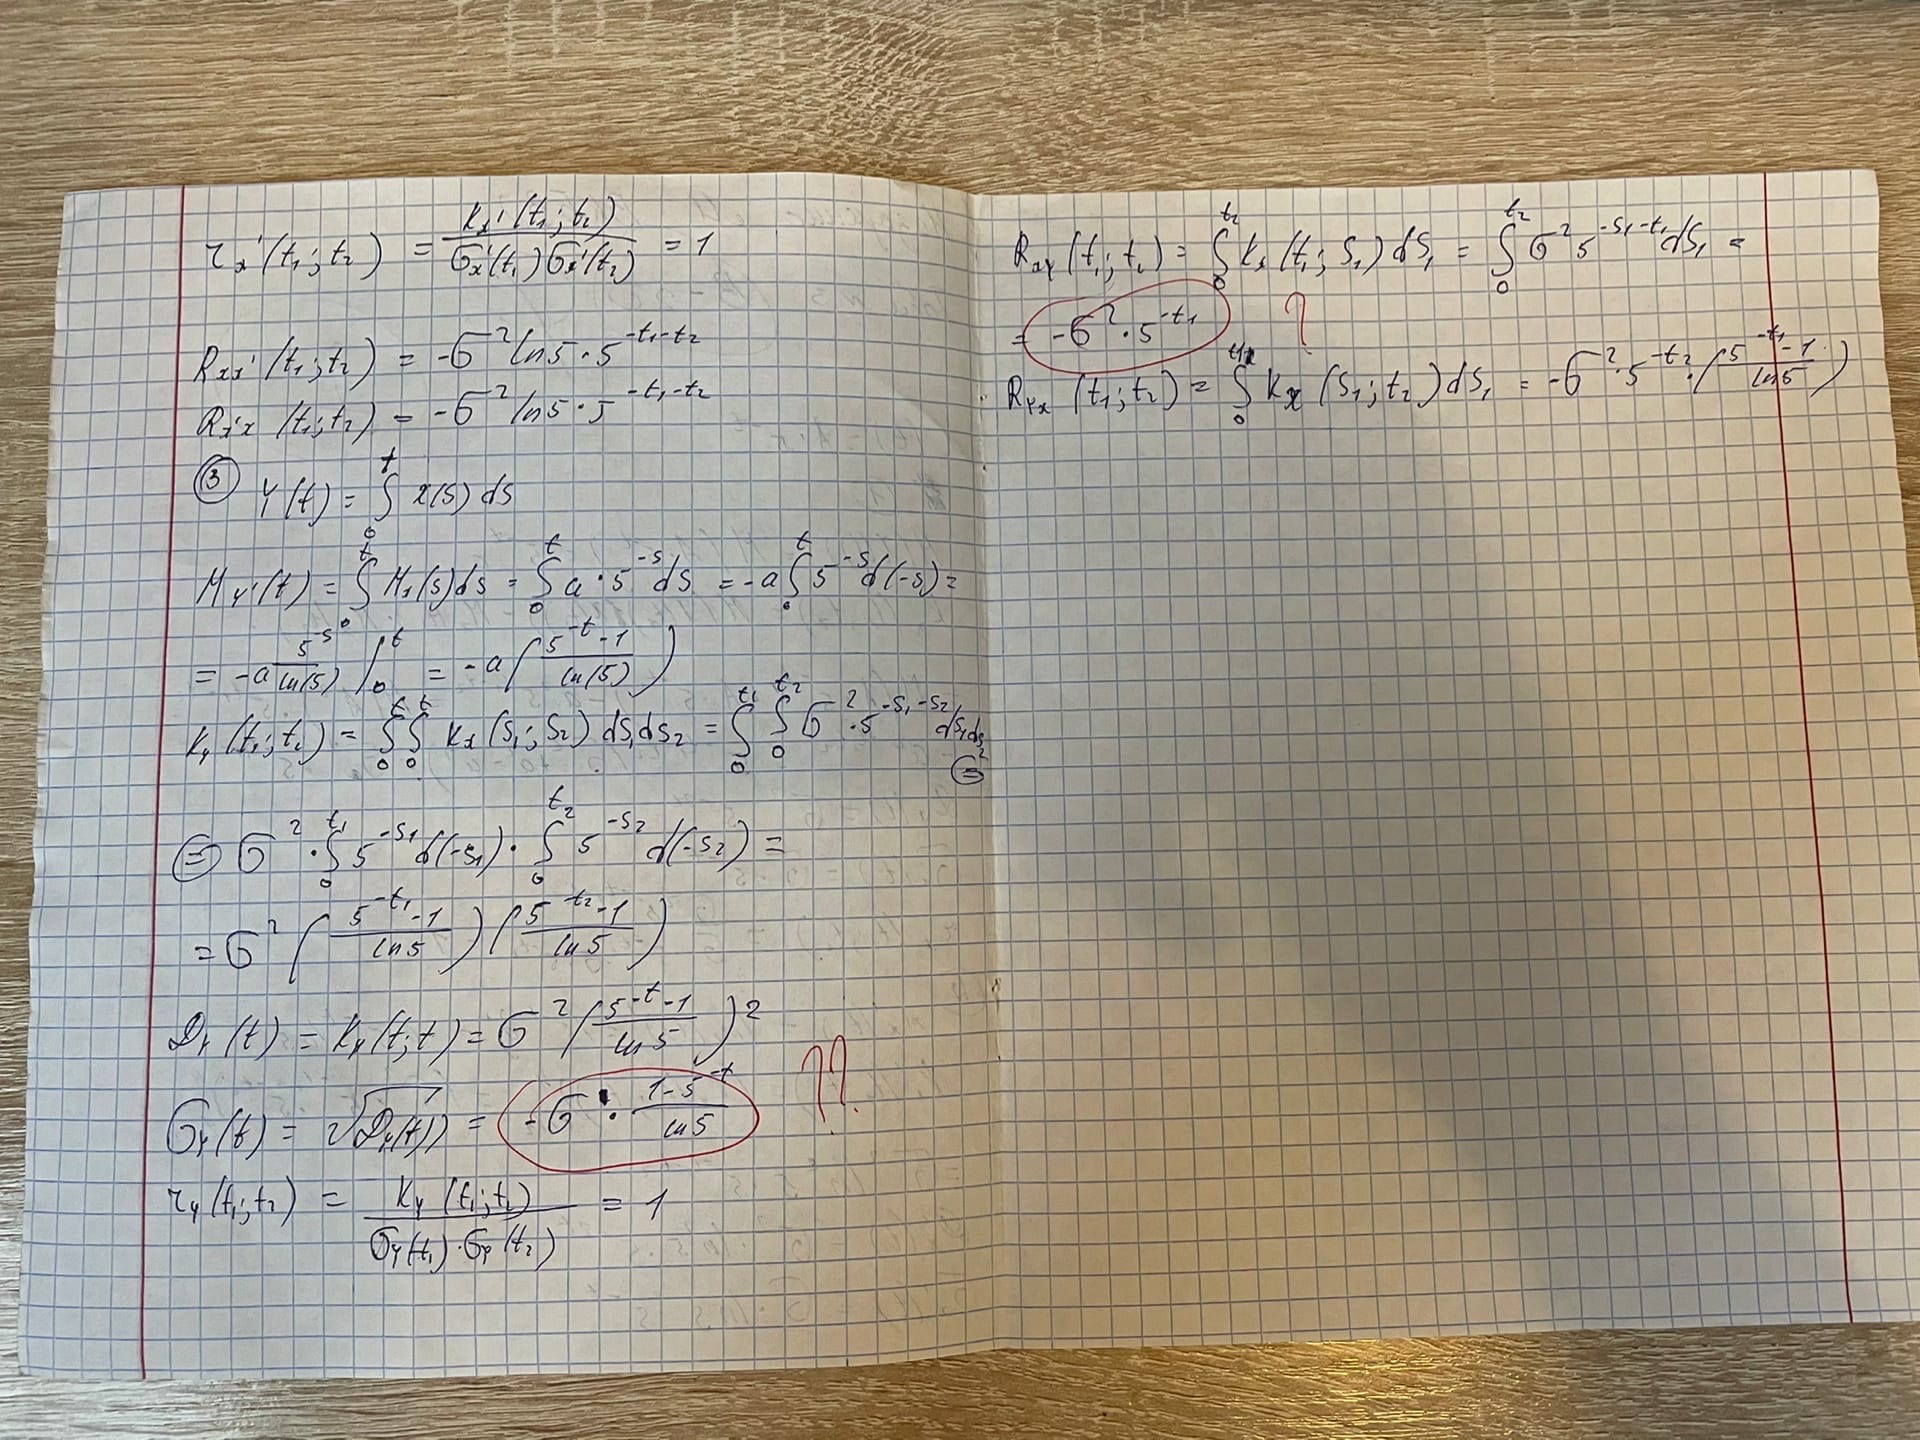 r_x'(t₁;t₂) = K_x'(t₁;t₂) / (σ_x'(t₁) σ_x'(t₂)) = 1
R_xx'(t₁;t₂) = -σ² ln5 · 5^(-t₁-t₂)
R_x'x(t₁;t₂) = -σ² ln5 · 5^(-t₁-t₂)
③ Y(t) = ∫₀^t x(s) ds
M_Y'(t) = ∫₀^t M_x(s)ds = ∫₀^t a·5^(-s) ds = -a ∫₀^t 5^(-s) d(-s) =
= -a 5^(-s)/ln(5) |₀^t = -a ( (5^(-t) - 1)/ln(5) )
K_Y(t₁;t₂) = ∫₀^t ∫₀^t K_x(s₁;s₂) ds₁ds₂ = ∫₀^t₁ ∫₀^t₂ σ²·5^(-s₁-s₂) ds₁ds₂ ⊜
⊜ σ² · ∫₀^t₁ 5^(-s₁) d(-s₁) · ∫₀^t₂ 5^(-s₂) d(-s₂) =
= σ² ( (5^(-t₁) - 1)/ln5 ) ( (5^(-t₂) - 1)/ln5 )
D_Y(t) = K_Y(t;t) = σ² ( (5^(-t) - 1)/ln5 )²
σ_Y(t) = √(D_Y(t)) = -σ · (1 - 5^(-t))/ln5 ??
r_Y(t₁;t₂) = K_Y(t₁;t₂) / (σ_Y(t₁)·σ_Y(t₂)) = 1
R_xY(t₁;t₂) = ∫₀^t₂ K_x(t₁;s₁) ds₁ = ∫₀^t₂ σ² 5^(-s₁-t₁) ds₁ =
= -σ² · 5^(-t₁) ?
R_Yx(t₁;t₂) = ∫₀^t₁ K_x(s₁;t₂) ds₁ = -σ²·5^(-t₂) · ( (5^(-t₁) - 1)/ln5 )